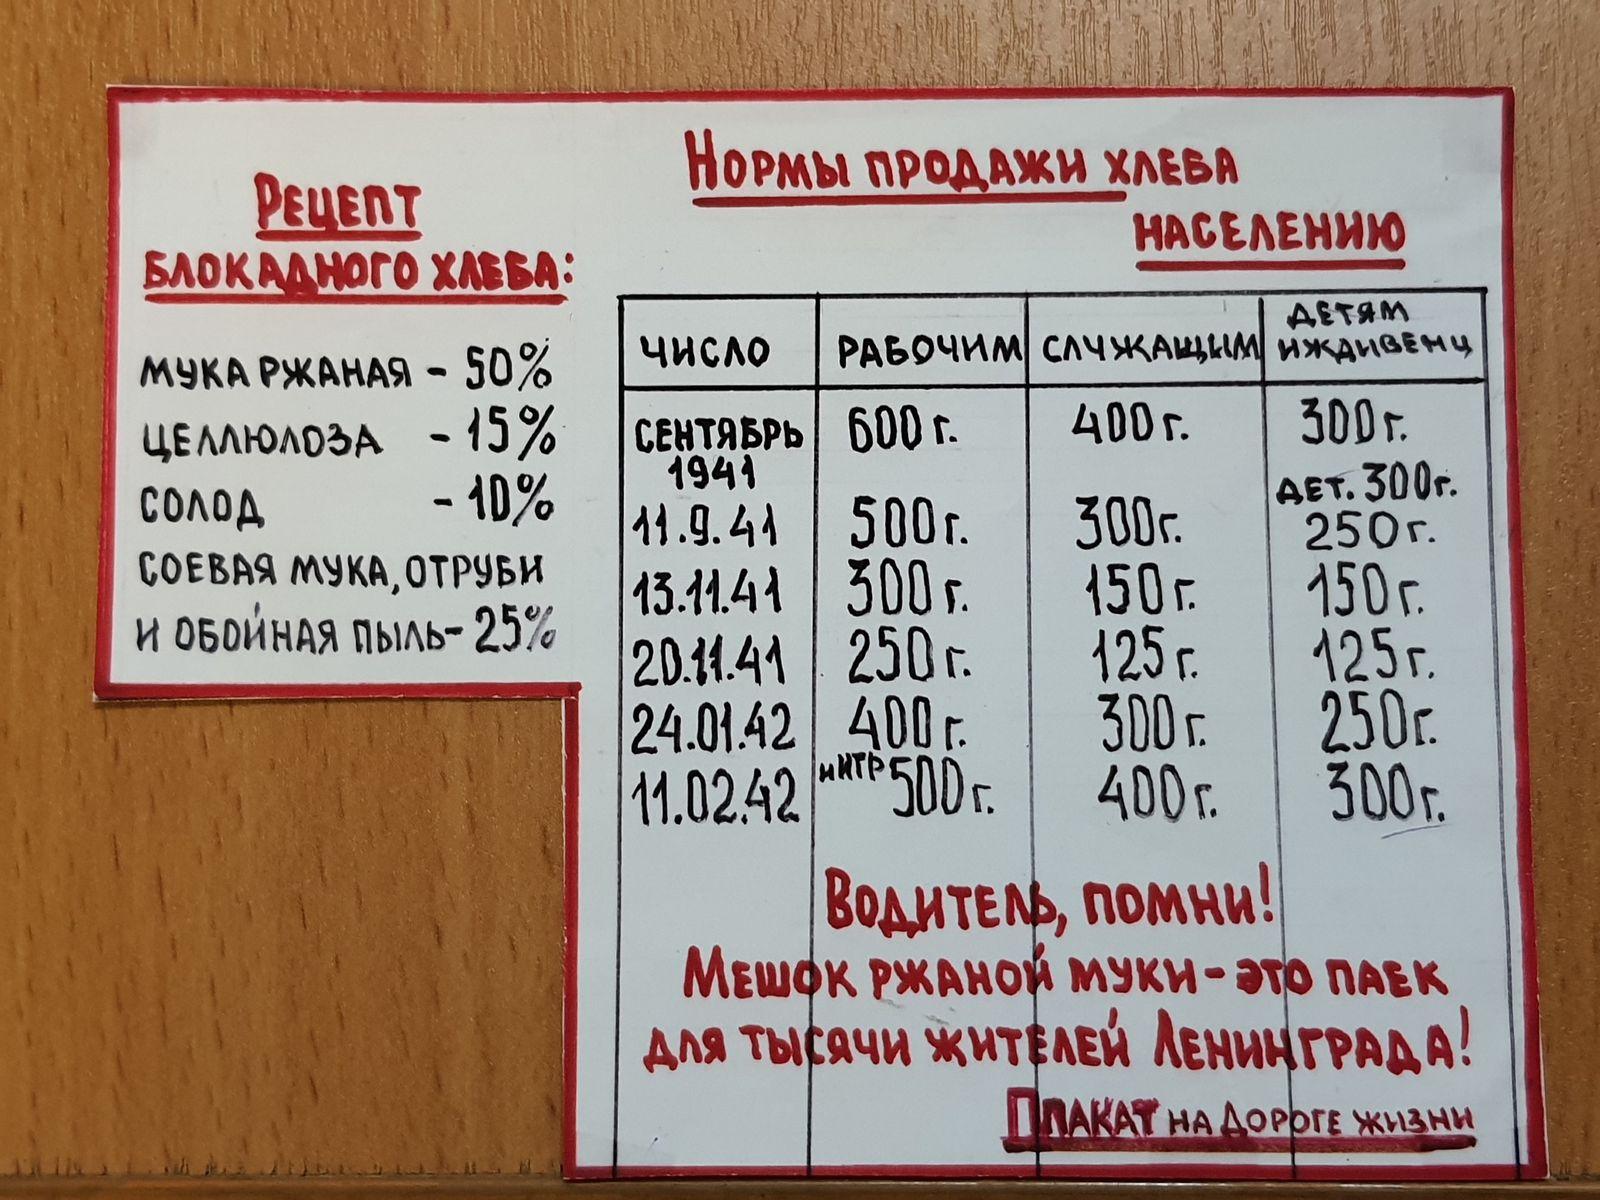 Рецепт
блокадного хлеба:
мука ржаная - 50%
целлюлоза - 15%
солод - 10%
соевая мука, отруби
и обойная пыль - 25%
Нормы продажи хлеба
населению
число рабочим служащим детям иждивенц
сентябрь 1941 600 г. 400 г. 300 г.
11.9.41 500 г. 300 г. дет. 300 г. 250 г.
13.11.41 300 г. 150 г. 150 г.
20.11.41 250 г. 125 г. 125 г.
24.01.42 400 г. 300 г. 250 г.
11.02.42 и ИТР 500 г. 400 г. 300 г.
Водитель, помни!
Мешок ржаной муки - это паек
для тысячи жителей Ленинграда!
Плакат на Дороге жизни